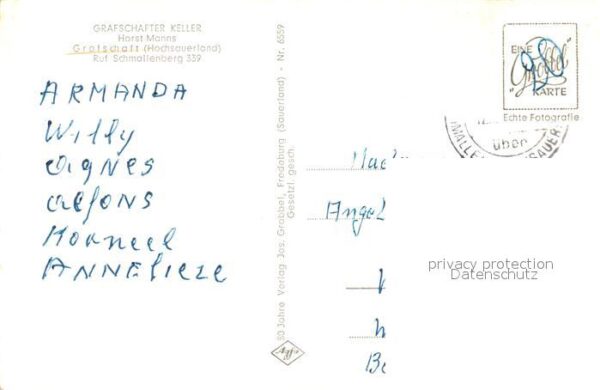 GRAFSCHAFTER KELLER
Horst Manns
Grafschaft (Hochsauerland)
Ruf Schmallenberg 339
ARMANDA
Willy
Agnes
Alfons
Korneel
ANNELIEZE
80 Jahre Verlag Jos. Grobbel, Fredeburg (Sauerland) - Nr. 6659
Gesetzl. gesch.
Agfa
EINE
"Grobbel"
KARTE
Echte Fotografie
über
privacy protection
Datenschutz